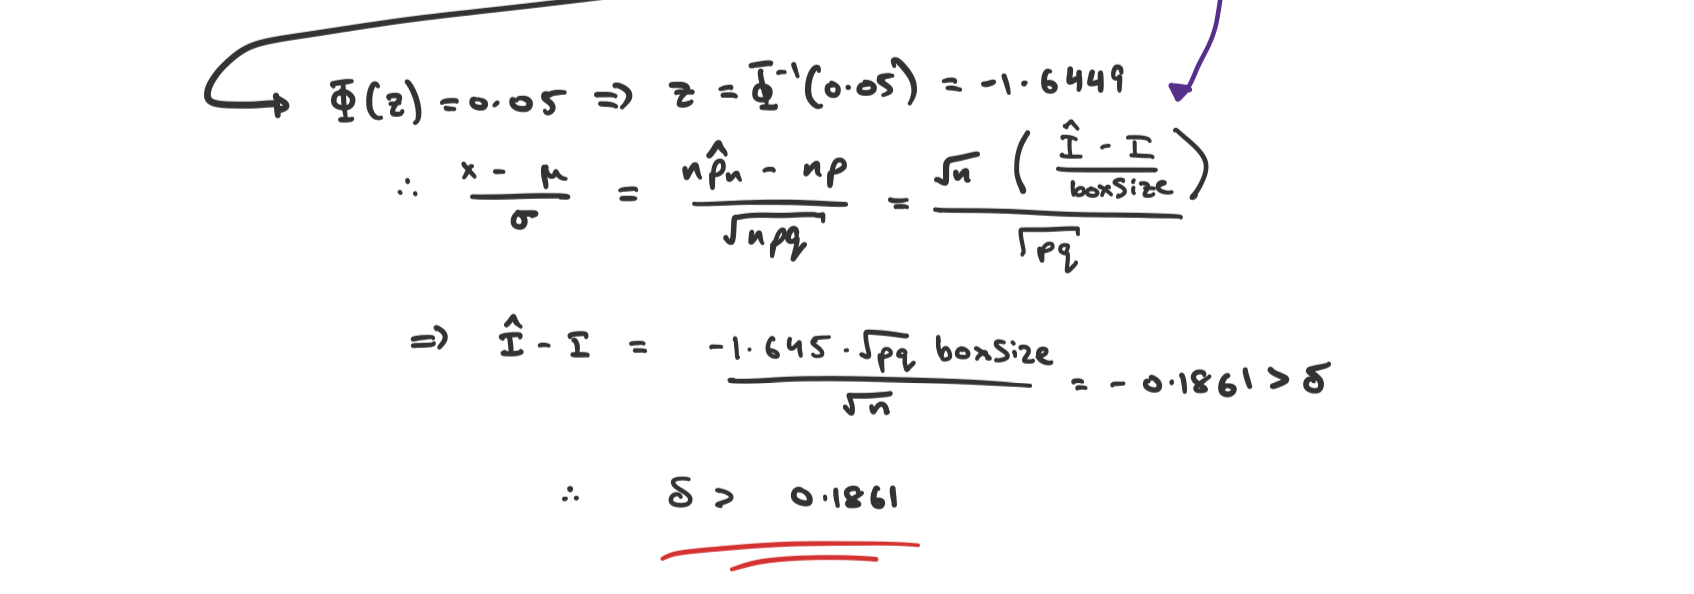 Φ(z) = 0.05 ⇒ z = Φ⁻¹(0.05) = -1.6449
∴ (x - μ)/σ = (np̂ₙ - np)/√(npq) = √n ((Î - I)/boxSize)/√(pq)
⇒ Î - I = (-1.645 · √(pq) boxSize)/√n = -0.1861 > δ
∴ δ > 0.1861